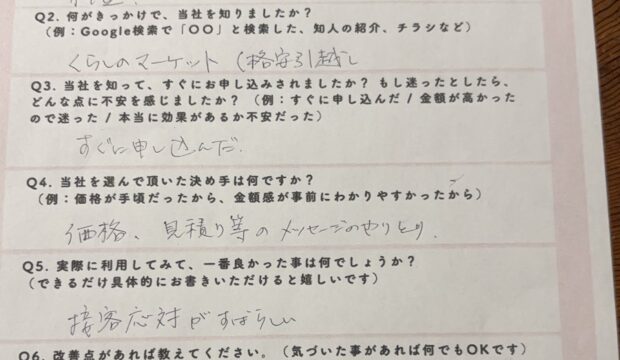 Q2. 何がきっかけで、当社を知りましたか？
（例：Google検索で「〇〇」と検索した、知人の紹介、チラシなど）
くらしのマーケット（格安引越し
Q3. 当社を知って、すぐにお申し込みされましたか？ もし迷ったとしたら、
どんな点に不安を感じましたか？（例：すぐに申し込んだ / 金額が高かった
ので迷った / 本当に効果があるか不安だった）
すぐに申し込んだ.
Q4. 当社を選んで頂いた決め手は何ですか？
（例：価格が手頃だったから、金額感が事前にわかりやすかったから）
価格、見積り等のメッセージのやりとり.
Q5. 実際に利用してみて、一番良かった事は何でしょうか？
（できるだけ具体的にお書きいただけると嬉しいです）
接客応対がすばらしい
Q6. 改善点があれば教えてください。（気づいた事があれば何でもOKです）